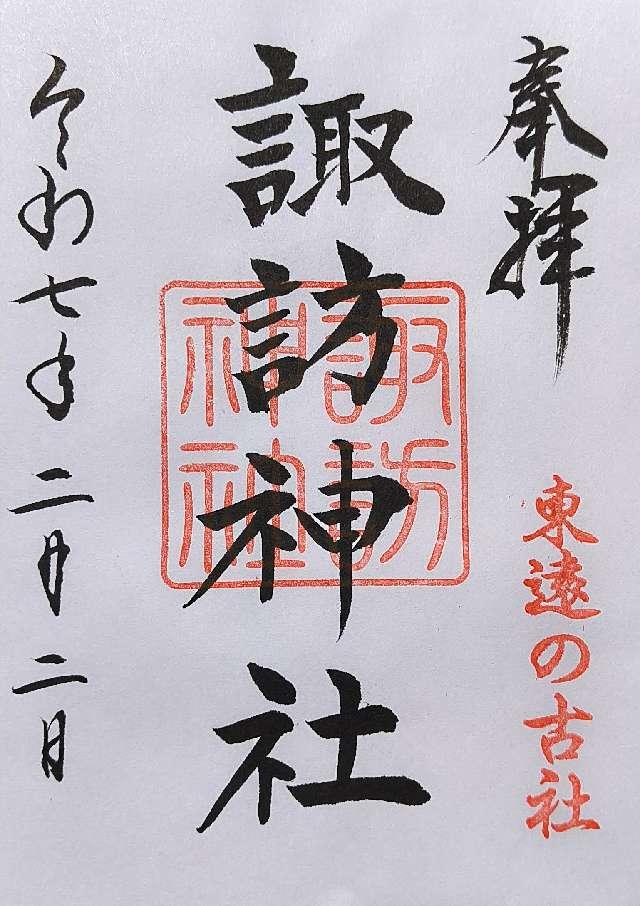 奉拝
東遠の古社
諏訪神社
諏訪
神社
令和七年二月二日